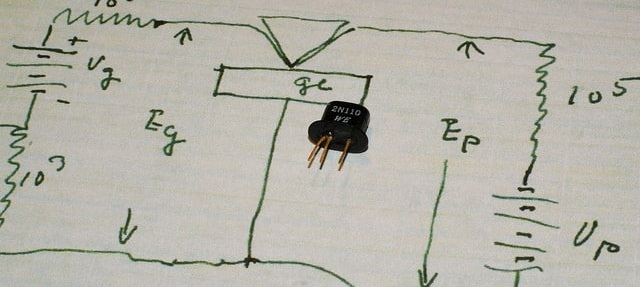 +
Vg
-
10³
Eg
ge
2N110
WE
Ep
10⁵
Vp